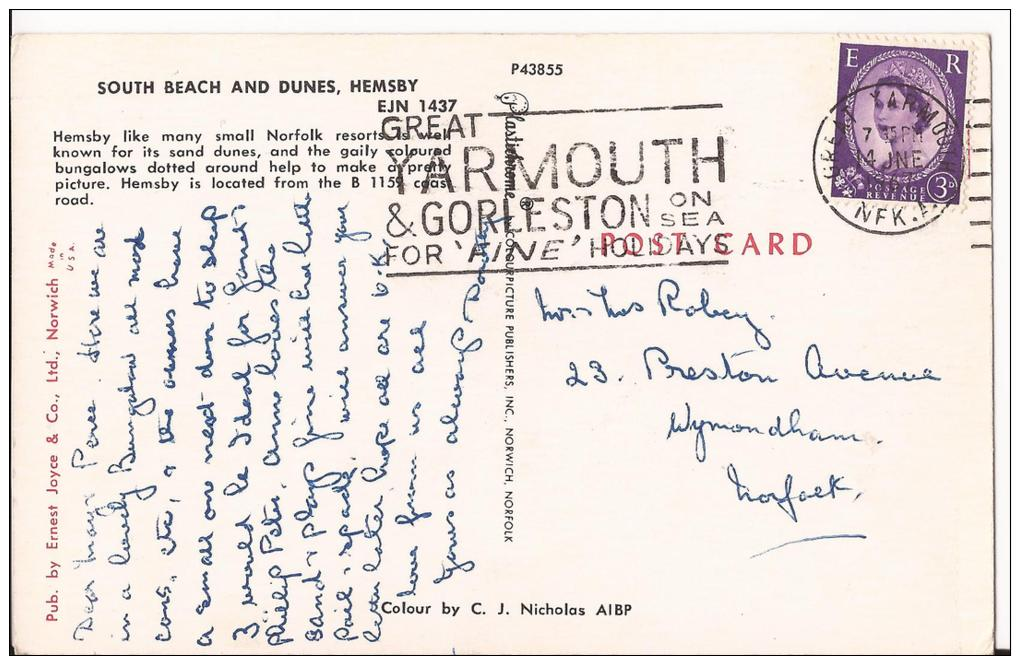 P43855
SOUTH BEACH AND DUNES, HEMSBY
EJN 1437
Hemsby like many small Norfolk resorts is well
known for its sand dunes, and the gaily coloured
bungalows dotted around help to make a pretty
picture. Hemsby is located from the B 1159 coast
road.
GREAT
YARMOUTH
& GORLESTON ON SEA
FOR 'FINE' HOLIDAYS
E R
POSTAGE
REVENUE 3D
GREAT YARMOUTH
7 PM
14 JNE
NFK.
POST CARD
Pub. by Ernest Joyce & Co., Ltd., Norwich
Made
in
U S A.
Plastichrome ® COLOURPICTURE PUBLISHERS, INC., NORWICH, NORFOLK
Dear Mary & Perce. Here we are
in a lovely Bungalow all mod
cons, etc, & the owners have
a small one next door to sleep
3 would be Ideal for Janet
Phillip Peter. Anne loves the
sand & plays fine with her little
Pail & spade. will answer your
letter later hope all are O.K.
love from us all
Yours as always
Mr & Mrs Robey.
23. Preston Avenue
Wymondham.
Norfolk.
Colour by C. J. Nicholas AIBP